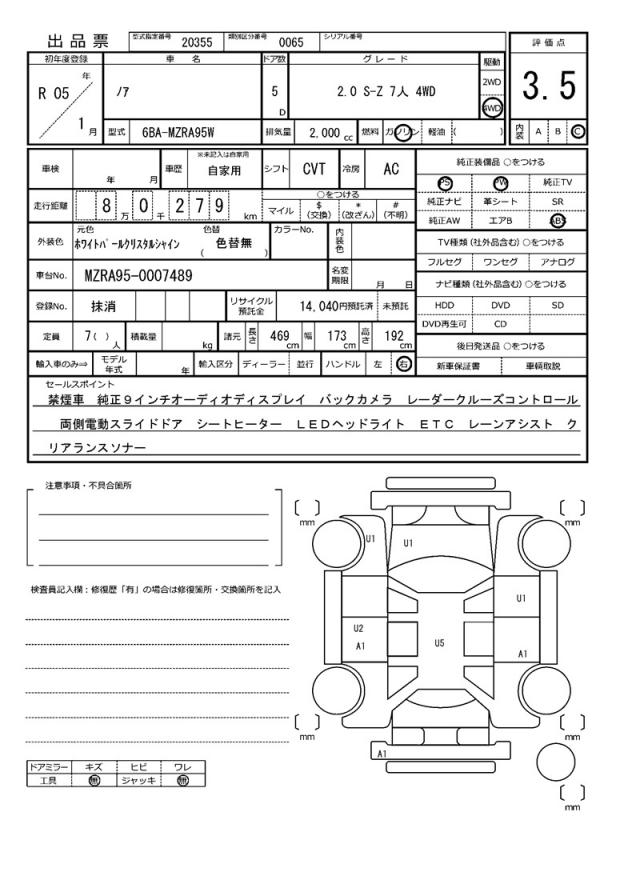 出品票 型式指定番号 20355 類別区分番号 0065 シリアル番号
評価点
3.5
内装 A B C
初年度登録 車名 ドア数 グレード 駆動
R 05 年 1 月
ノア
5 D
2.0 S-Z 7人 4WD
2WD
4WD
型式 6BA-MZRA95W 排気量 2,000 cc 燃料 ガソリン 軽油 ( )
車検 年 月 車歴 ※未記入は自家用 自家用 シフト CVT 冷房 AC
走行距離 8 万 0 千 2 7 9 km
○をつける
マイル $ (交換) * (改ざん) # (不明)
外装色 元色 ホワイトパールクリスタルシャイン 色替 ( 色替無 ) カラーNo. 内装色
車台No. MZRA95-0007489 名変期限 月 日
登録No. 抹消 リサイクル預託金 14,040円預託済 未預託
定員 7( ) 人 積載量 kg 諸元 長さ 469 cm 幅 173 cm 高さ 192 cm
輸入車のみ⇒ モデル年式 年 輸入区分 ディーラー 並行 ハンドル 左 右
純正装備品 ○をつける
PS PW 純正TV
純正ナビ 革シート SR
純正AW エアB ABS
TV種類(社外品含む) ○をつける
フルセグ ワンセグ アナログ
ナビ種類(社外品含む) ○をつける
HDD DVD SD
DVD再生可 CD
後日発送品 ○をつける
新車保証書 車輌取説
セールスポイント
禁煙車 純正9インチオーディオディスプレイ バックカメラ レーダークルーズコントロール
両側電動スライドドア シートヒーター LEDヘッドライト ETC レーンアシスト ク
リアランスソナー
注意事項・不具合箇所
検査員記入欄：修復歴「有」の場合は修復箇所・交換箇所を記入
ドアミラー キズ ヒビ ワレ
工具 無 ジャッキ 無
[ ] mm
[ ] mm
U1
U1
U1
U2
A1
U5
A1
[ ] mm
[ ] mm
A1
[ ] mm